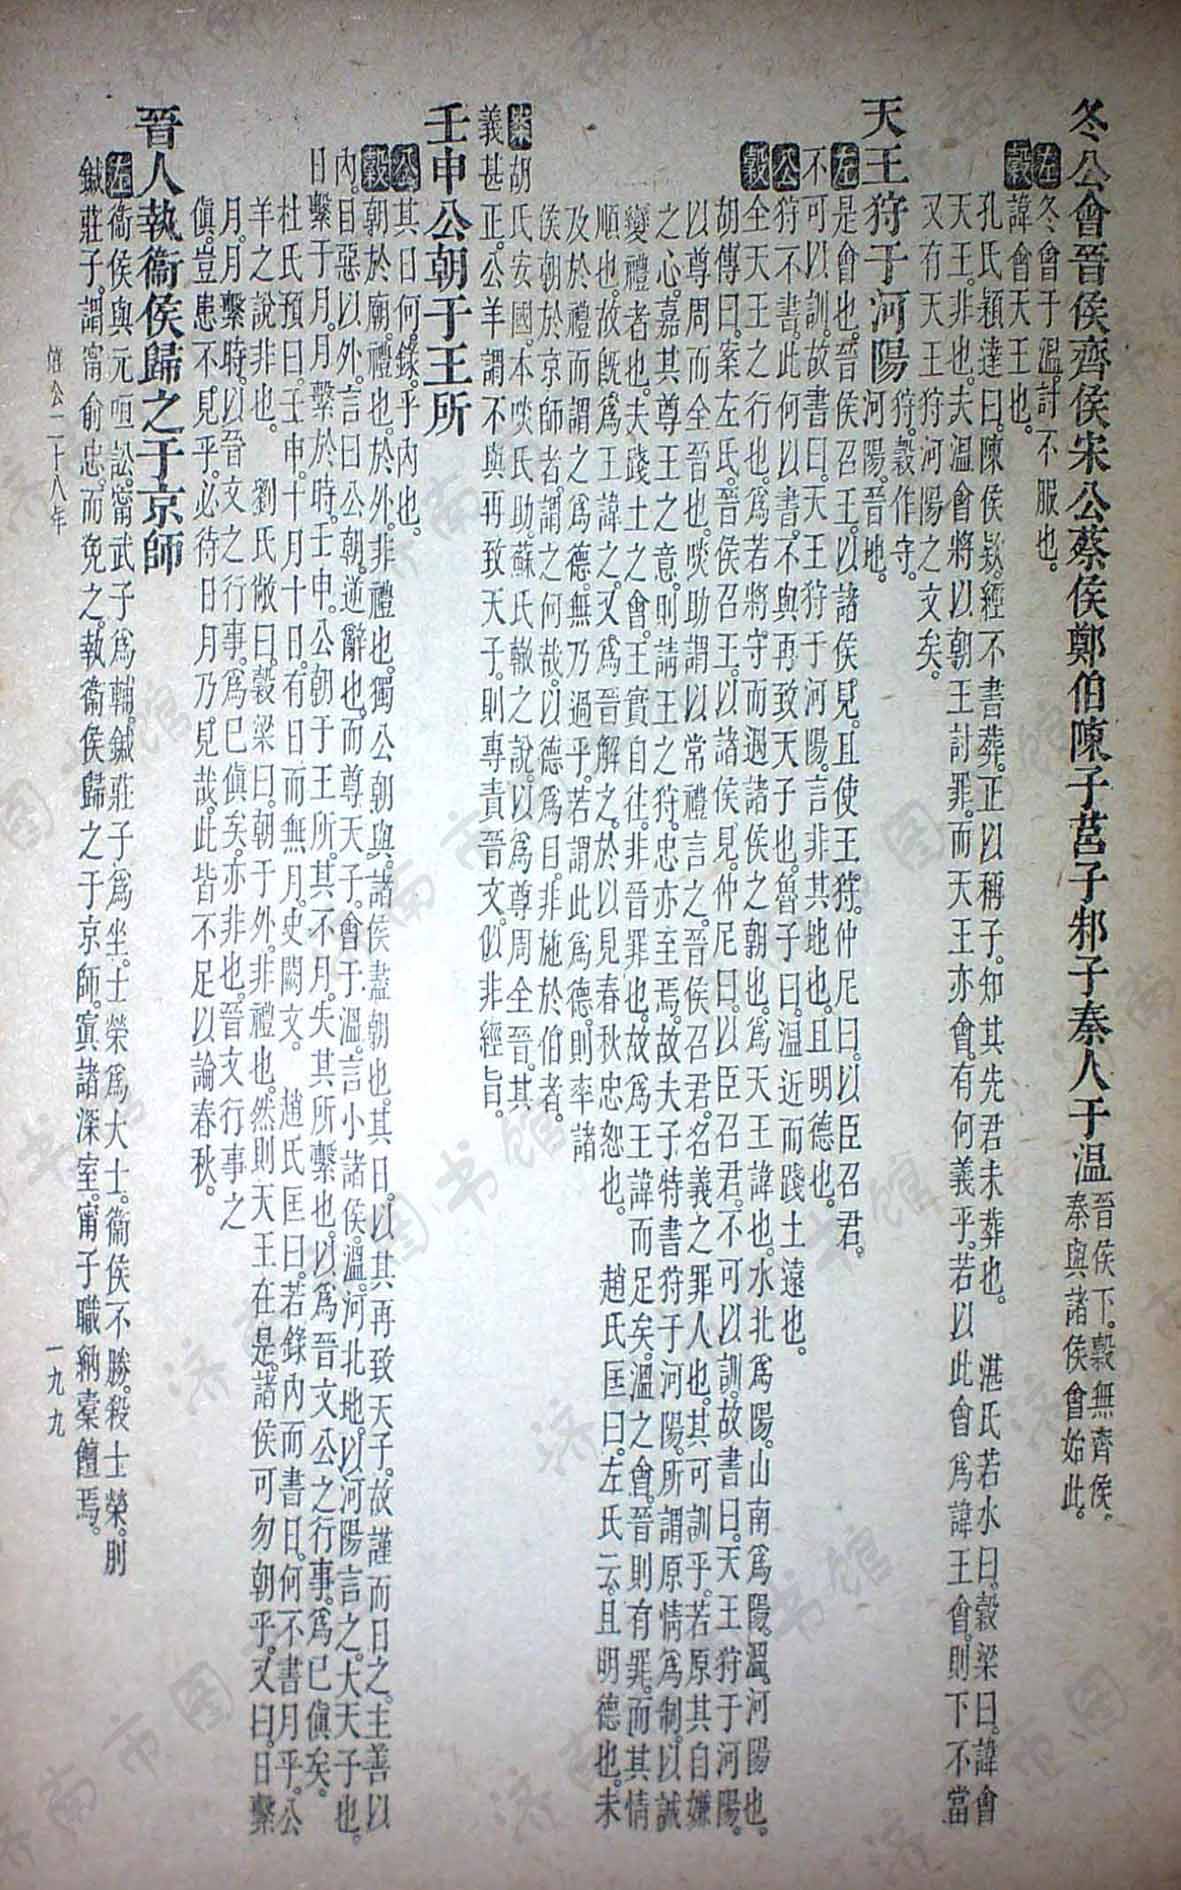 冬公會晉侯齊侯宋公蔡侯鄭伯陳子莒子邾子秦人于溫
晉侯下。穀無齊侯。
秦與諸侯會始此。
左冬會于溫。討不服也。
穀諱會天王也。
孔氏穎達曰。陳侯欵。經不書葬。正以稱子。知其先君未葬也。　湛氏若水曰。穀梁曰。諱會
天王。非也。夫溫會將以朝王討罪。而天王亦會。有何義乎。若以此會爲諱王會。則下不當
又有天王狩河陽之文矣。
天王狩于河陽
狩。穀作守。
河陽。晉地。
左是會也。晉侯召王。以諸侯見。且使王狩。仲尼曰。以臣召君。
不可以訓。故書曰。天王狩于河陽。言非其地也。且明德也。
公狩不書。此何以書。不與再致天子也。魯子曰。溫近而踐土遠也。
穀全天王之行也。爲若將守。而遇諸侯之朝也。爲天王諱也。水北爲陽。山南爲陽。溫。河陽也。
胡傳曰。案左氏。晉侯召王。以諸侯見。仲尼曰。以臣召君。不可以訓。故書曰。天王狩于河陽。
以尊周而全晉也。啖助謂以常禮言之。晉侯召君。名義之罪人也。其可訓乎。若原其自嫌
之心。嘉其尊王之意。則請王之狩。忠亦至焉。故夫子特書狩于河陽。所謂原情爲制。以誠
變禮者也。夫踐土之會。王實自往。非晉罪也。故爲王諱而足矣。溫之會。晉則有罪。而其情
順也。故旣爲王諱之。又爲晉解之。於以見春秋忠恕也。　趙氏匡曰。左氏云。且明德也。未
及於禮而謂之爲德。無乃過乎。若謂此爲德。則率諸
侯朝於京師者。謂之何哉。以德爲目。非施於伯者。
案胡氏安國。本啖氏助蘇氏轍之說。以爲尊周全晉。其
義甚正。公羊謂不與再致天子。則專責晉文。似非經旨。
壬申公朝于王所
公其日何。錄乎內也。
穀朝於廟。禮也。於外。非禮也。獨公朝與。諸侯盡朝也。其日。以其再致天子。故謹而日之。主善以
內。目惡以外。言曰公朝。逆辭也。而尊天子。會于溫。言小諸侯。溫。河北地。以河陽言之。大天子也。
日繫于月。月繫於時。壬申。公朝于王所。其不月。失其所繫也。以爲晉文公之行事。爲已傎矣。
杜氏預曰。壬申。十月十日。有日而無月。史闕文。　趙氏匡曰。若錄內而書日。何不書月乎。公
羊之說非也。　劉氏敞曰。穀梁曰。朝于外。非禮也。然則天王在是。諸侯可勿朝乎。又曰。日繫
月。月繫時。以晉文之行事。爲已傎矣。亦非也。晉文行事之
傎。豈患不見乎。必待日月乃見哉。此皆不足以論春秋。
晉人執衞侯歸之于京師
左衞侯與元咺訟。甯武子爲輔。鍼莊子爲坐。士榮爲大士。衞侯不勝。殺士榮。刖
鍼莊子。謂甯俞忠。而免之。執衞侯歸之于京師。寘諸深室。甯子職納橐饘焉。
僖公二十八年
一九九